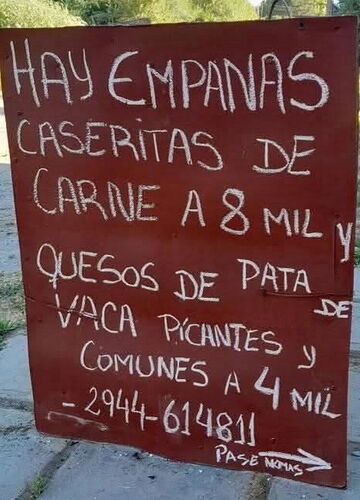 HAY EMPANAS
CASERITAS DE
CARNE A 8 MIL y
QUESOS DE PATA DE
VACA PICANTES y
COMUNES A 4 MIL
- 2944-614811
PASE NOMAS